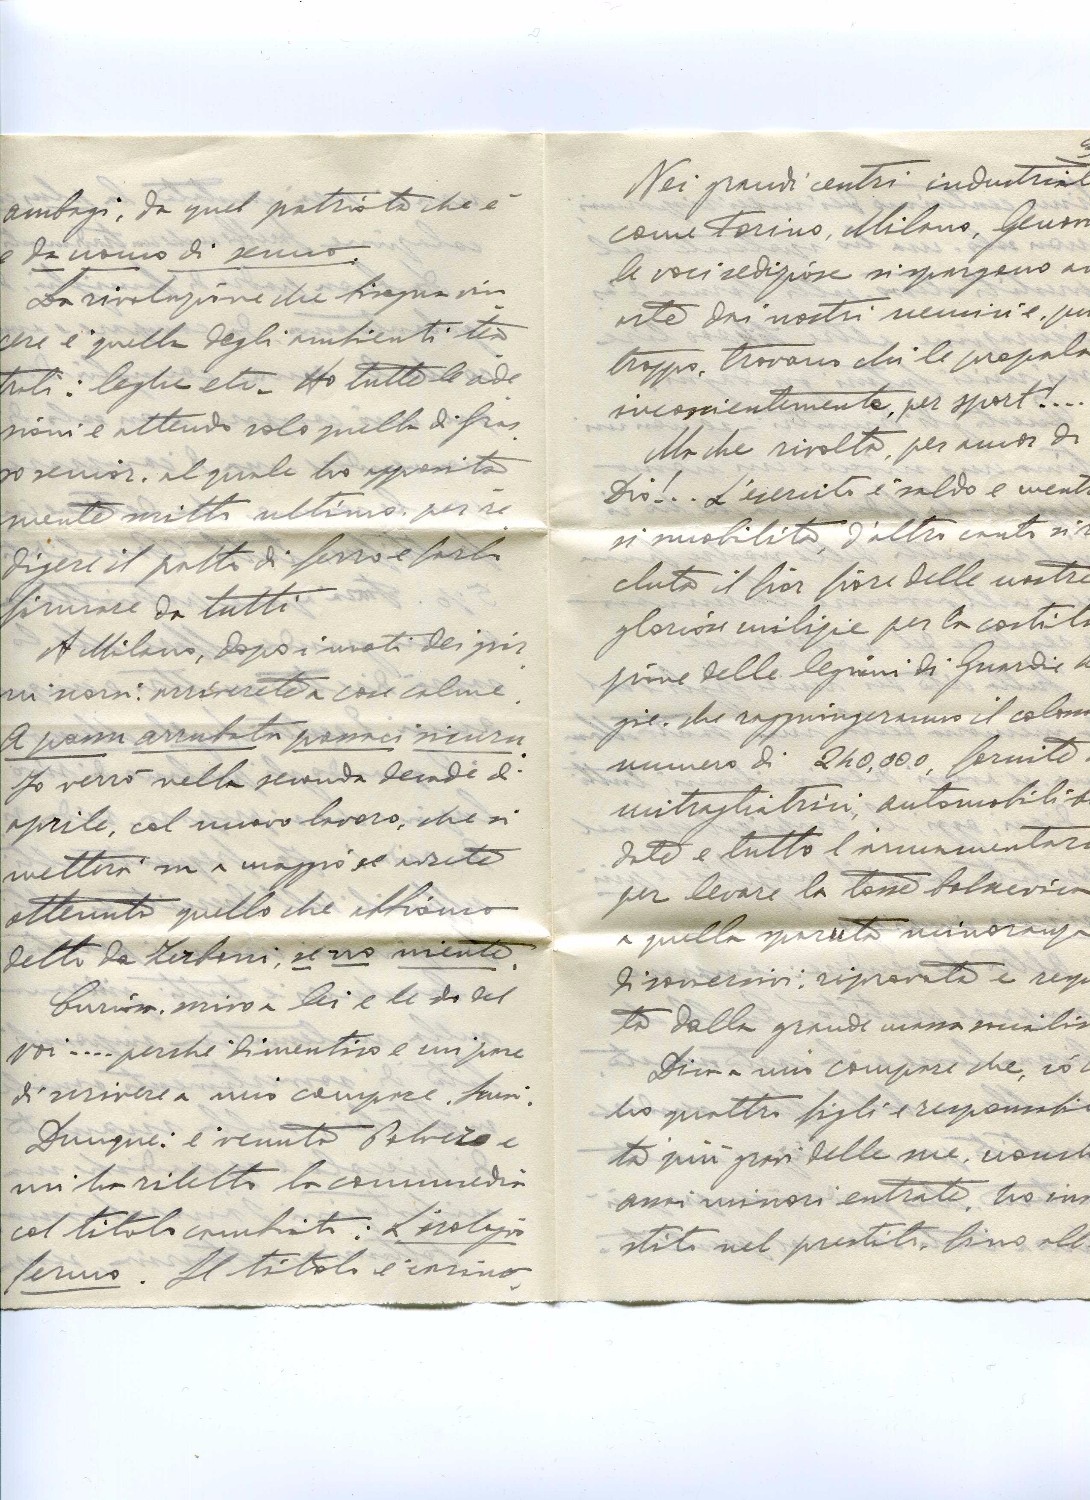 ambagi, da quel patriota che è
e da uomo di senno.
La rivoluzione che bisogna vin
cere è quella degli ambienti tea
trali: leghe etc. Ho tutte le ade
sioni e attendo solo quella di Gras
so senior. al quale ho apposita
mente scritto ultimo. per re
digere il patto di ferro e farlo
firmare da tutti
A Milano, dopo i moti dei gior
ni scorsi: arriverete a cose calme.
Io verrò nella seconda decade di
aprile, col nuovo lavoro, che si
metterà su a maggio se avrete
ottenuto quello che abbiamo
detto da Zerboni, se no niente.
Curioso. scrivo a lei e le do del
voi .... perchè dimentico e mi pare
di scrivere a mio compare.
Dunque: è venuto e
mi ha riletto la commedia
col titolo cambiato: L'orologio
fermo. Il titolo è carino,
Nei grandi centri industrial
come Torino, Milano, Genov
le voci sediziose si spargono ad
arte dai nostri nemici e. pur
troppo. trovano chi le propala
incoscientemente, per sport!....
Ma che rivolta, per amor di
Dio!.. L'esercito è saldo e mentr
si smobilita, d'altro canto si re
cluta il fior fiore delle nostre
gloriose milizie per la costitu
zione delle legioni di Guardie R
gie. che raggiungeranno il coloss
numero di 240,000, fornite
mitragliatrici, automobili bl
date e tutto l'armamentario
per levare la tosse bolscevica
a quella sparuta minoranza
di sovversivi: riprovata e repu
ta dalla grande massa socialis
Dica a mio compare che, io
ho quattro figli e responsabili
tà più gravi delle sue. nonch
assai minori entrate, ho inv
stito nel prestito. fino all